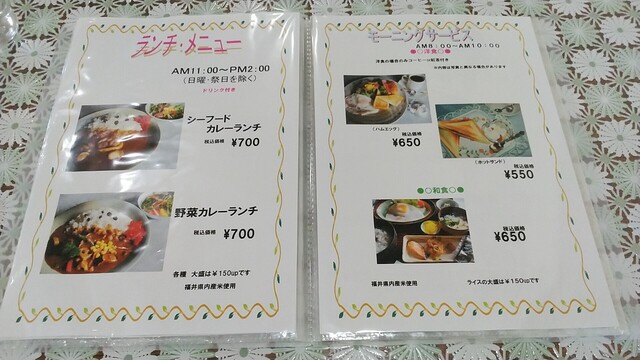 ランチ・メニュー
AM11:00～PM2:00
(日曜・祭日を除く)
ドリンク付き
シーフード
カレーランチ
税込価格 ¥700
野菜カレーランチ
税込価格 ¥700
各種 大盛は¥150upです
福井県内産米使用
モーニングサービス
AM8:00～AM10:00
●○洋食○●
洋食の場合のみコーヒーor紅茶付き
※内容は写真と異なる場合があります
(ハムエッグ)
税込価格
¥650
(ホットサンド)
税込価格
¥550
●○和食○●
税込価格
¥650
福井県内産米使用
ライスの大盛は¥150upです